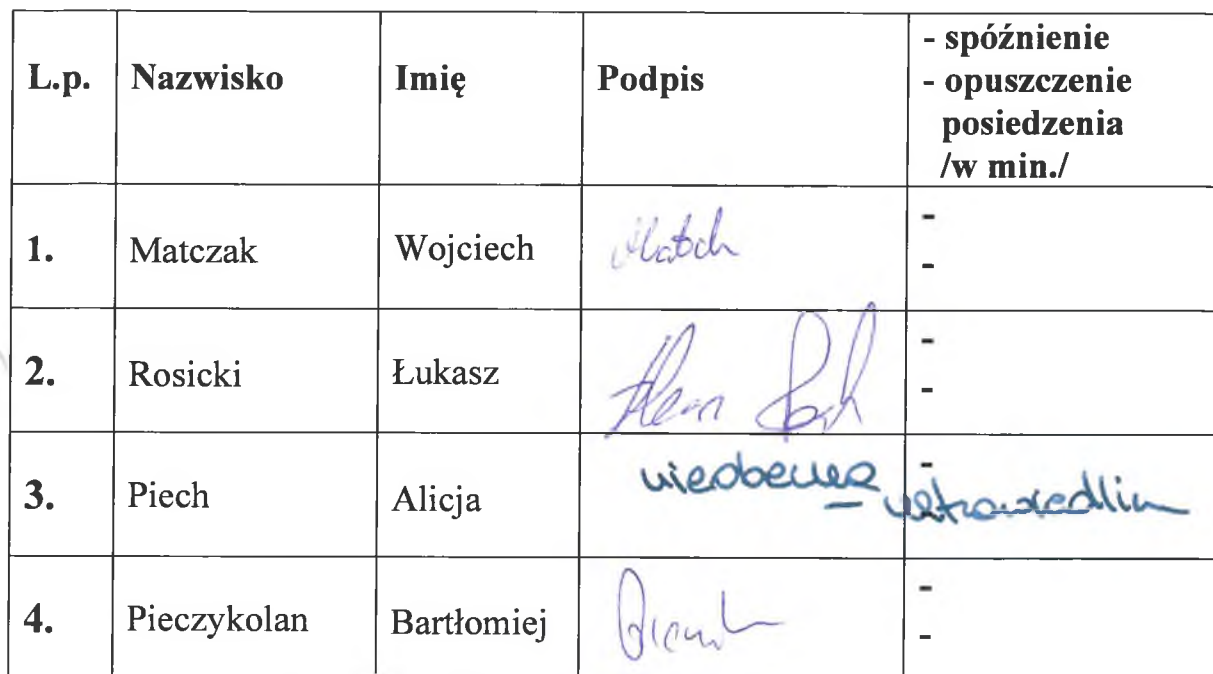 L.p. Nazwisko Imię Podpis - spóźnienie
- opuszczenie
posiedzenia
/w min./
1. Matczak Wojciech -
-
2. Rosicki Łukasz -
-
3. Piech Alicja nieobecna - -
4. Pieczykolan Bartłomiej -
-